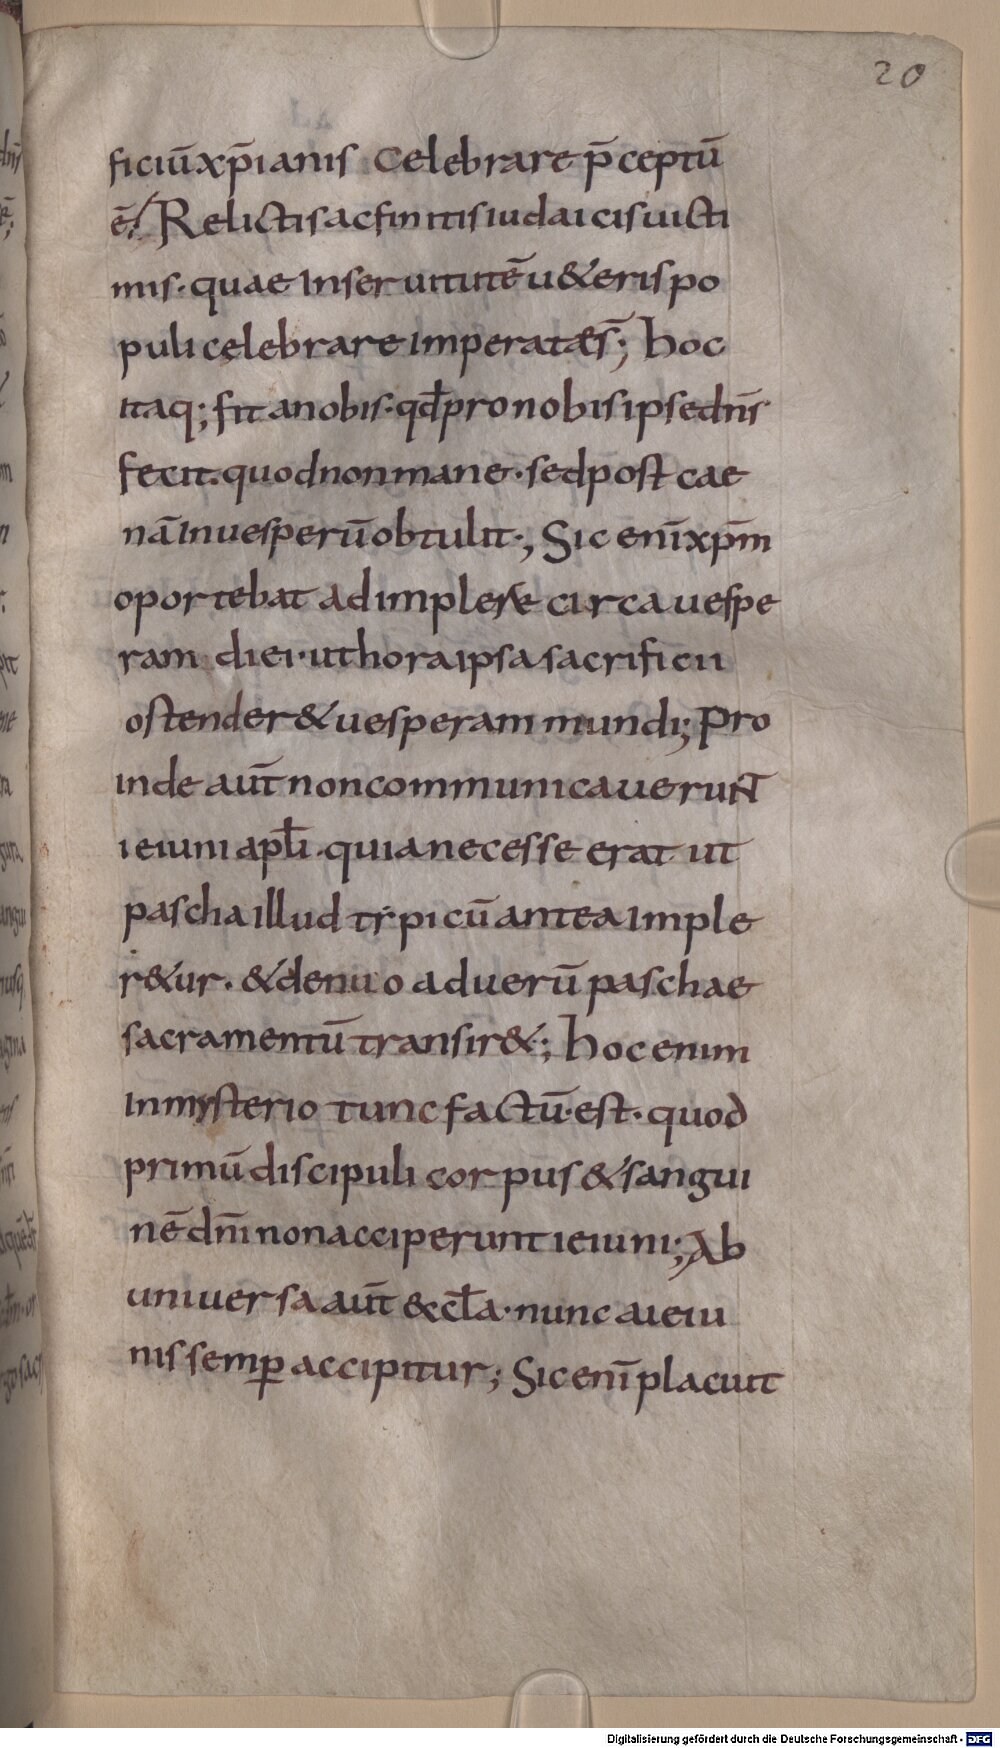 20
ficiū xp̄ianis Celebrare p̄ceptū
ē; Relictis ac finitis iudaicis uicti
mis· quae Inseruitutē u&eris po
puli celebrare imperatæ s̄; hoc
itaq; fit anobis· qđ pro nobis ipse dn̄s
fecit. quod non mane· sed post cae
nā In uesperū obtulit·, Sic enī xp̄m
oportebat adimplere circa uespe
ram diei· ut hora ipsa sacrificii
ostender& uesperam mundi; pro
inde aut̄ non communicauerunt
ieiuni apłi· quia necesse erat ut
pascha illud tẏpicū antea imple
r&ur. & denuo ad uerū paschae
sacramentū transir&·; hoc enim
In mysterio tunc factū· est· quod
primū discipuli corpus & sangui
nē dn̄i non acciperunt ieiuni; Ab
uniuersa aut̄ &cła· nunc a ieiu
nis semꝑ accipitur; Sic enī placuit
Digitalisierung gefördert durch die Deutsche Forschungsgemeinschaft - DFG